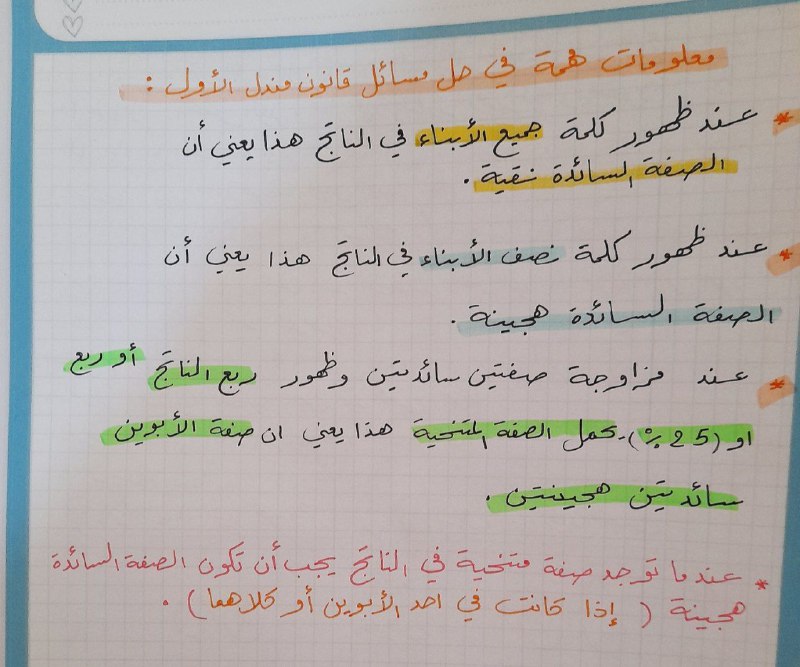 معلومات همة في حل مسائل قانون مندل الأول :
* عند ظهور كلمة جميع الأبناء في الناتج هذا يعني أن
الصفة السائدة نقية .
* عند ظهور كلمة نصف الأبناء في الناتج هذا يعني أن
الصفة السائدة هجينة .
* عند مزاوجة صفتين سائدتين وظهور ربع الناتج أو ربع
او (25 %) يحمل الصفة المتنحية هذا يعني ان صفة الأبوين
سائدتين هجينتين .
* عندما توجد صفة متنحية في الناتج يجب أن تكون الصفة السائدة
هجينة ( إذا كانت في احد الأبوين أو كلاهما ) .